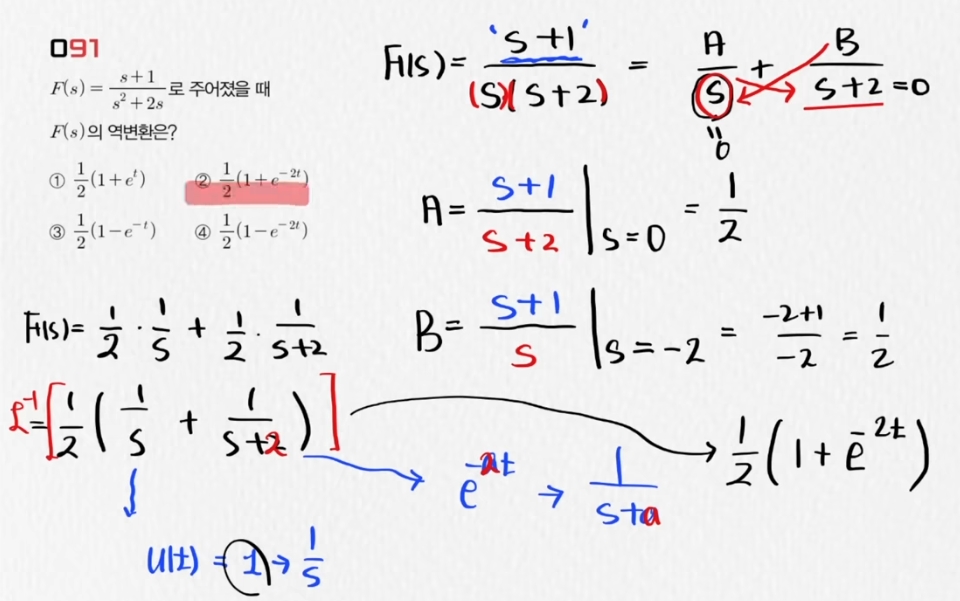 091
F(s) = \frac{s+1}{s^2+2s} 로 주어졌을 때
F(s)의 역변환은?
① \frac{1}{2}(1+e^t) ② \frac{1}{2}(1+e^{-2t})
③ \frac{1}{2}(1-e^{-t}) ④ \frac{1}{2}(1-e^{-2t})
F(s) = \frac{'s+1'}{(s)(s+2)} = \frac{A}{s} + \frac{B}{s+2} = 0
= 0
A = \frac{s+1}{s+2} |_{s=0} = \frac{1}{2}
B = \frac{s+1}{s} |_{s=-2} = \frac{-2+1}{-2} = \frac{1}{2}
F(s) = \frac{1}{2} · \frac{1}{s} + \frac{1}{2} · \frac{1}{s+2}
ℒ^{-1} = [\frac{1}{2} ( \frac{1}{s} + \frac{1}{s+2} ) ] → \frac{1}{2} ( 1 + e^{-2t} )
e^{-at} → \frac{1}{s+a}
u(t) = 1 → \frac{1}{s}